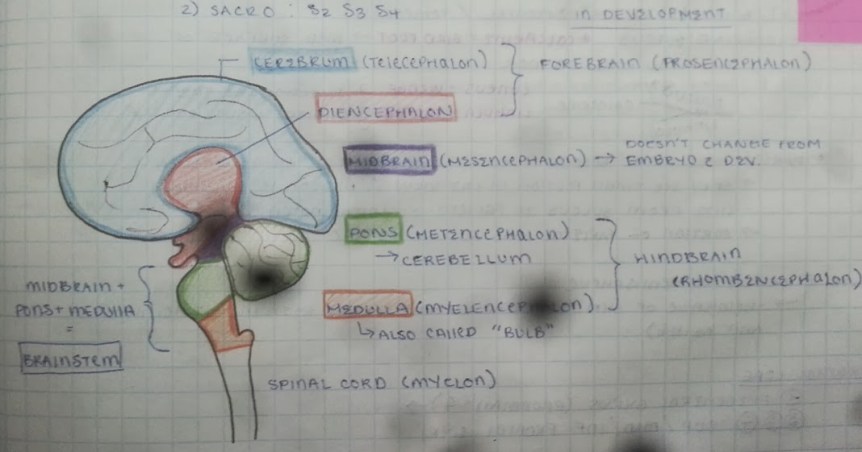 2) SACRO : S2 S3 S4
in DEVELOPMENT
CEREBRUM (TELECEPHALON)
FOREBRAIN (PROSENCEPHALON)
DIENCEPHALON
MIDBRAIN (MESENCEPHALON) → DOESN'T CHANGE FROM
EMBRYO C DEV.
PONS (METENCEPHALON)
→ CEREBELLUM
HINDBRAIN
(RHOMBENCEPHALON)
MIDBRAIN +
PONS + MEDULLA
=
BRAINSTEM
MEDULLA (MYELENCEPHALON)
↳ ALSO CALLED "BULB"
SPINAL CORD (MYELON)